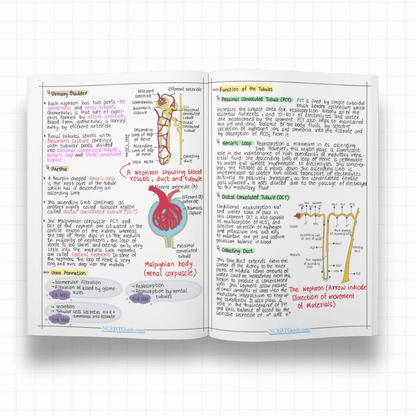 Urinary Bladder
Each nephron has two parts - the
glomerulus and renal tubule.
Glomerulus is a tuft of capill-
aries formed by afferent arteriole.
Blood from glomerulus is carried
away by efferent arteriole.
Renal tubule starts with
Bowman's capsule continues
with tubular parts, divided
into Proximal convoluted tubule,
Henle's loop and Distal convoluted
tubule.
Afferent
arteriole
Efferent arteriole
Glomerulus
Bowman's
capsule
Descending
limb of loop
of Henle
Ascending
limb of loop
of Henle
Vasa recta
Proximal
convoluted
tubule
Distal
convoluted
tubule
Collecting
duct
A Nephron showing blood
vessels, duct and tubule
Urethra
A hairpin shaped Henle's loop
is the next part of the tubule
which has a descending and
ascending limb
The ascending limb continues as
another highly coiled tubular region
called distal convoluted tubule (DCT)
The Malpighian corpuscle, PCT and
DCT of the nephron are situated in the
cortical region of the kidney whereas
the loop of Henle dips in to the medulla
In majority of nephrons, the loop of
Henle is too short and extends only very
little into the medulla. Such nephrons
are called cortical nephrons. In some of
the nephrons, the loop of Henle is very
long and runs deep into the medulla
Afferent arteriole
Efferent arteriole
Bowman's
capsule
Proximal
convoluted
tubule
Malpighian body
(renal corpuscle)
Urine Formation
Glomerular filtration
Filtration of blood by glome-
rulus
Reabsorption
Reabsorption by Renal
tubules
Secretion
Tubular cells secrete H+ K+
ammonia into filtrate
NCERTGuide.com
Function of the Tubules
Proximal Convoluted Tubule (PCT):
PCT is lined by simple cuboidal
brush border epithelium which
increases the surface area for reabsorption. Nearly all of the
essential nutrients, and 70-80% of electrolytes and water
are reabsorbed by this segment. PCT also helps to maintain
the pH and ionic balance of the body fluids by selective
secretion of hydrogen ions and ammonia into the filtrate and
by absorption of HCO3- from it.
Henle's Loop:
Reabsorption is minimum in its ascending
limb. However, this region plays a significant
role in the maintenance of high osmolarity of medullary inters-
titial fluid. The descending limb of loop of Henle is permeable
to water but almost impermeable to electrolytes. This concen-
trates the filtrate as it moves down. The ascending limb is
impermeable to water but allows transport of electrolytes
actively or passively. Therefore, as the concentrated filtrate
pass upward, it gets diluted due to the passage of electrolytes
to the medullary fluid.
Distal Convoluted Tubule (DCT):
Conditional reabsorption of Na+
and water takes place in
this segment. DCT is also capable
of reabsorption of HCO3- and
selective secretion of hydrogen
and potassium ions and NH3
to maintain the pH and sodium-
potassium balance in blood
Collecting Duct:
This long duct extends from the
cortex of the kidney to the inner
parts of medulla. Large amounts of
water could be reabsorbed from this
region to produce a concentrated
urine. This segment allows passage
of small amounts of urea into the
medullary interstitium to keep up
the osmolarity. It also plays a
role in the maintenance of pH
and ionic balance of blood by the
selective secretion of H+ and K+
The Nephron (Arrow indicate
Direction of movement
of Materials)
NCERTGuide.com